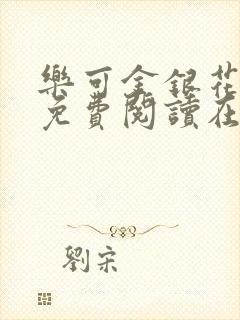 樂可金銀花
免費閱讀在
劉宋